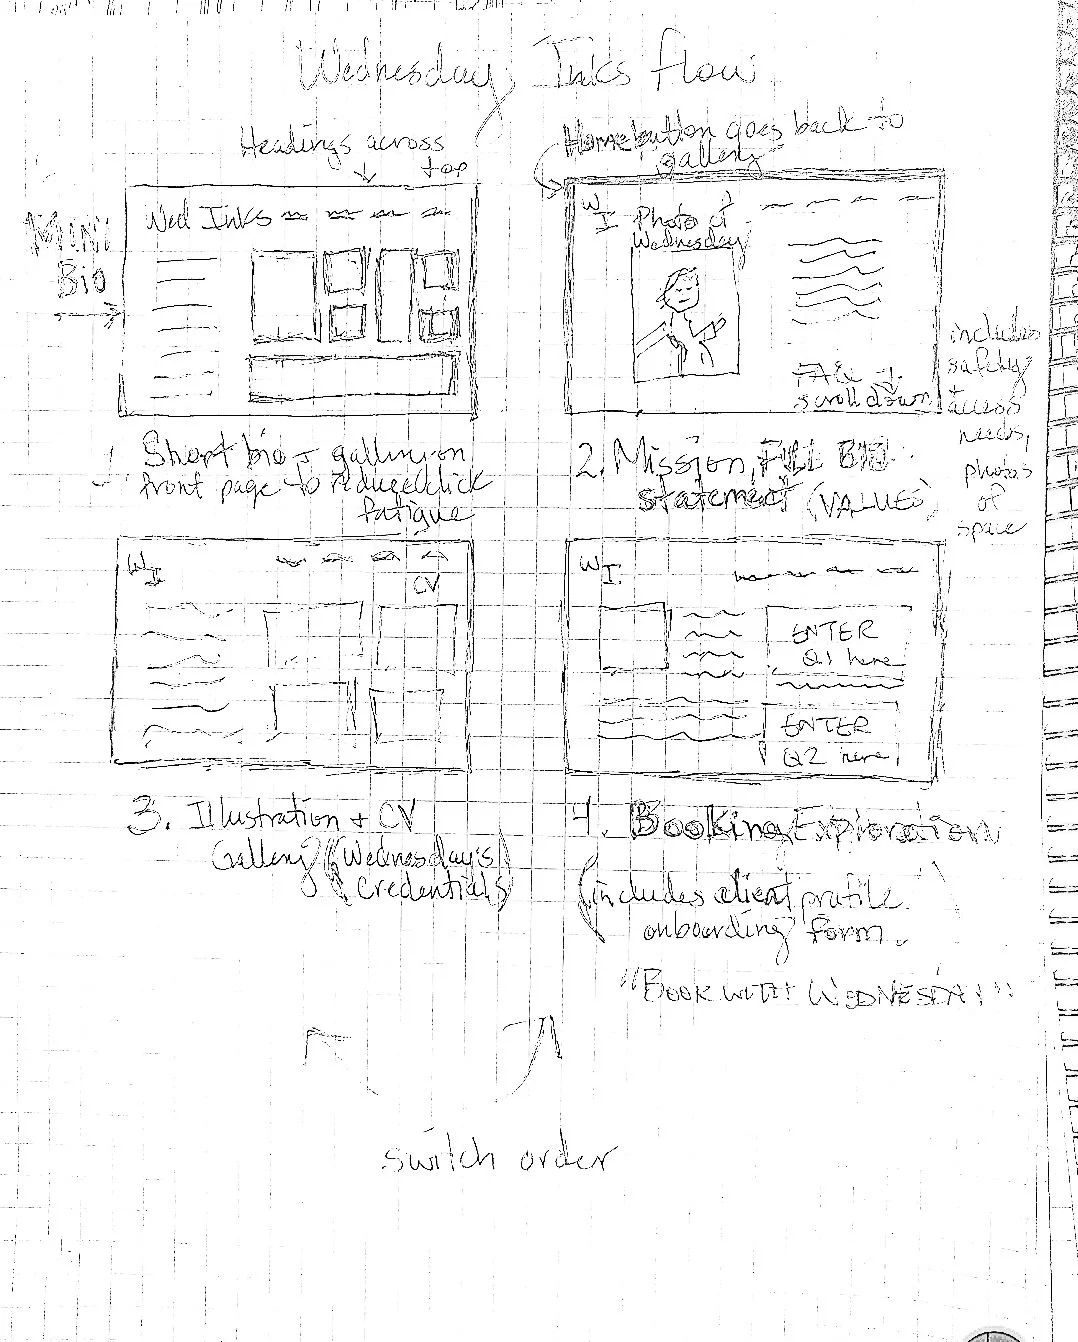 Wednesday Inks flow
Headings across
top
Home button goes back to
gallery
Mini
Bio
Wed Inks
W
I
Photo of
Wednesday
scroll down
includes
safety
+
access
needs,
photos
of
space
1 Short bio + gallery on
front page to reduce click
fatigue
2. Mission, FULL BIO
statement (VALUES)
W
I
CV
W
I.
ENTER
Q1 here
ENTER
Q2 here
3. Illustration + CV
Gallery (Wednesday's
credentials)
4. Booking Exploration
(includes client profile
onboarding form.
"BOOK WITH WEDNESDAY"
switch order